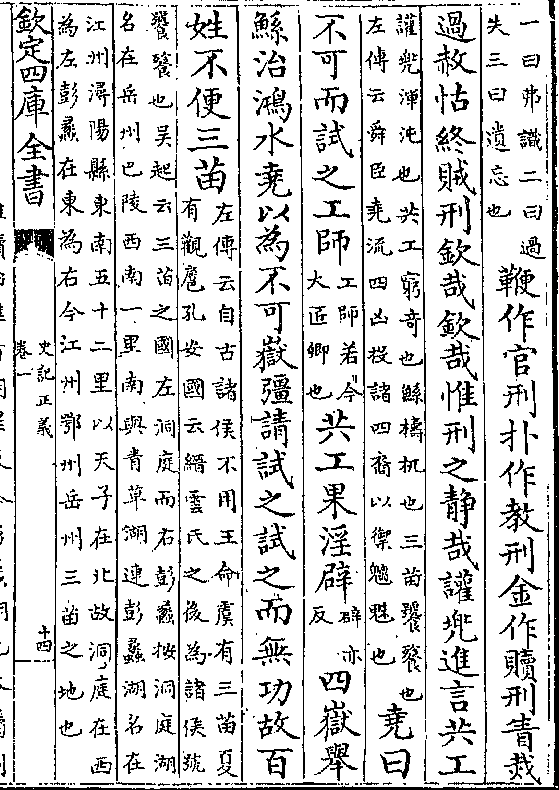 一曰弗識二曰過
失三曰遺忘也
鞭作官刑扑作教刑金作贖刑眚烖
過赦怙終賊刑欽哉欽哉惟刑之静哉讙兜進言共工
讙兜渾沌也共工窮竒也鯀檮杌也三苗饕餮也
左傳云舜臣堯流四凶投諸四裔以禦魑魅也
堯曰
不可而試之工師
工師若今
大匠卿也
共工果淫辟
辟亦
反
四嶽舉
鯀治鴻水堯以為不可嶽彊請試之試之而無功故百
姓不便三苗
左傳云自古諸侯不用王命虞有三苗夏
有觀扈孔安國云縉雲氏之後為諸侯號
饕餮也吳起云三苗之國左洞庭而右彭蠡按洞庭湖
名在岳州巴陵西南一里南與青草湖連彭蠡湖名在
江州潯陽縣東南五十二里以天子在北故洞庭在西
為左彭蠡在東為右今江州鄂州岳州三苗之地也
欽定四庫全書
史記正義
卷一
十四